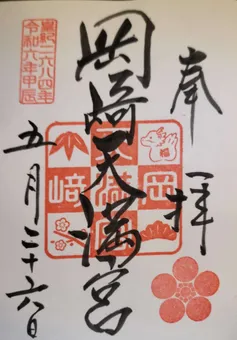 奉拝
岡崎天満宮
岡崎天満宮
皇紀二六八四年
令和六年甲辰
五月二十六日